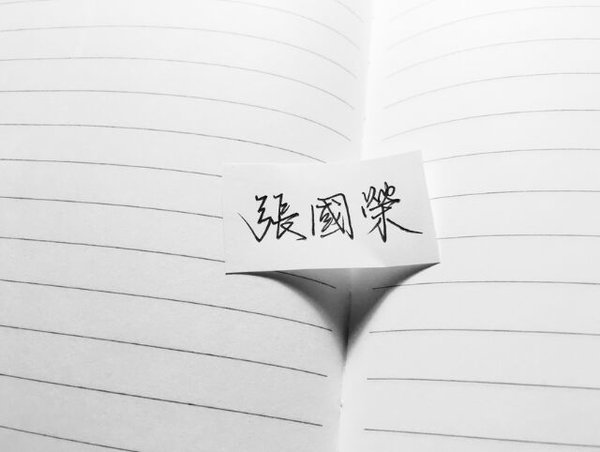 張國榮